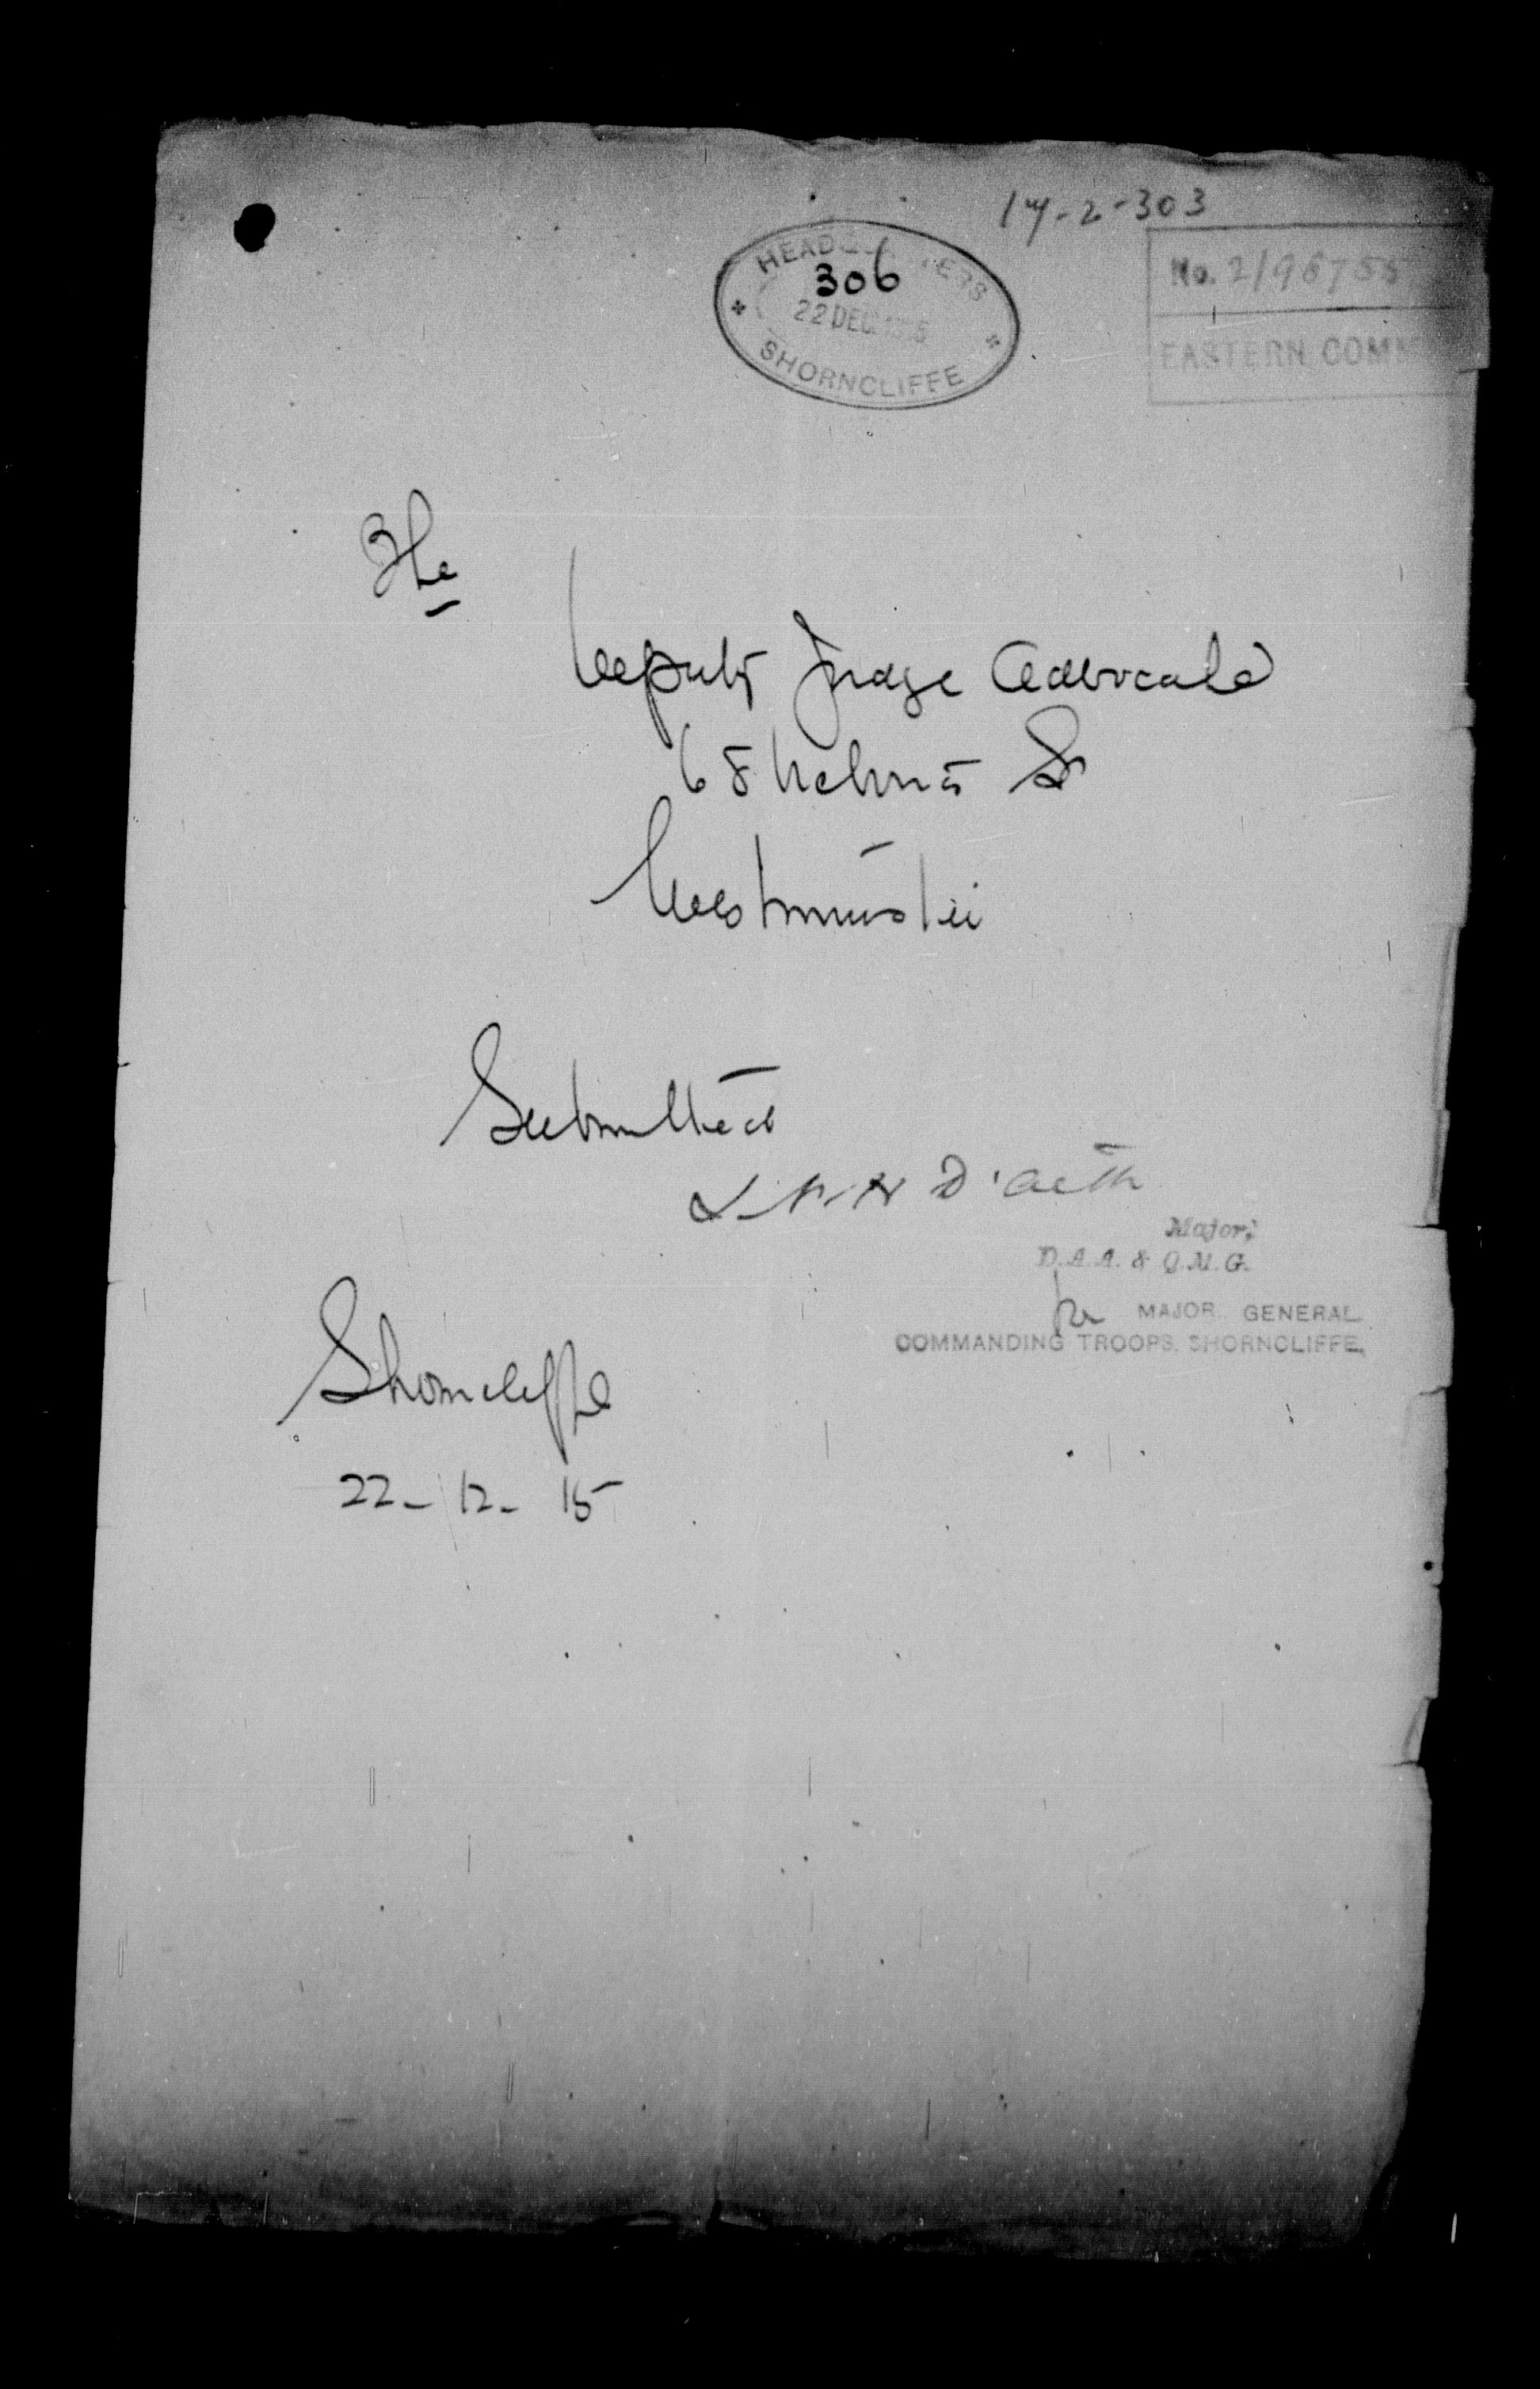 17-2-303
HEADQUARTERS
306
22 DEC 1915
SHORNCLIFFE
No. 2/98755
EASTERN COMM
The
Deputy Judge Advocate
68 Victoria St
Westminster
Submitted
D'Aeth
Major,
D.A.A. & Q.M.G.
for MAJOR GENERAL
COMMANDING TROOPS. SHORNCLIFFE.
Shorncliffe
22-12-15